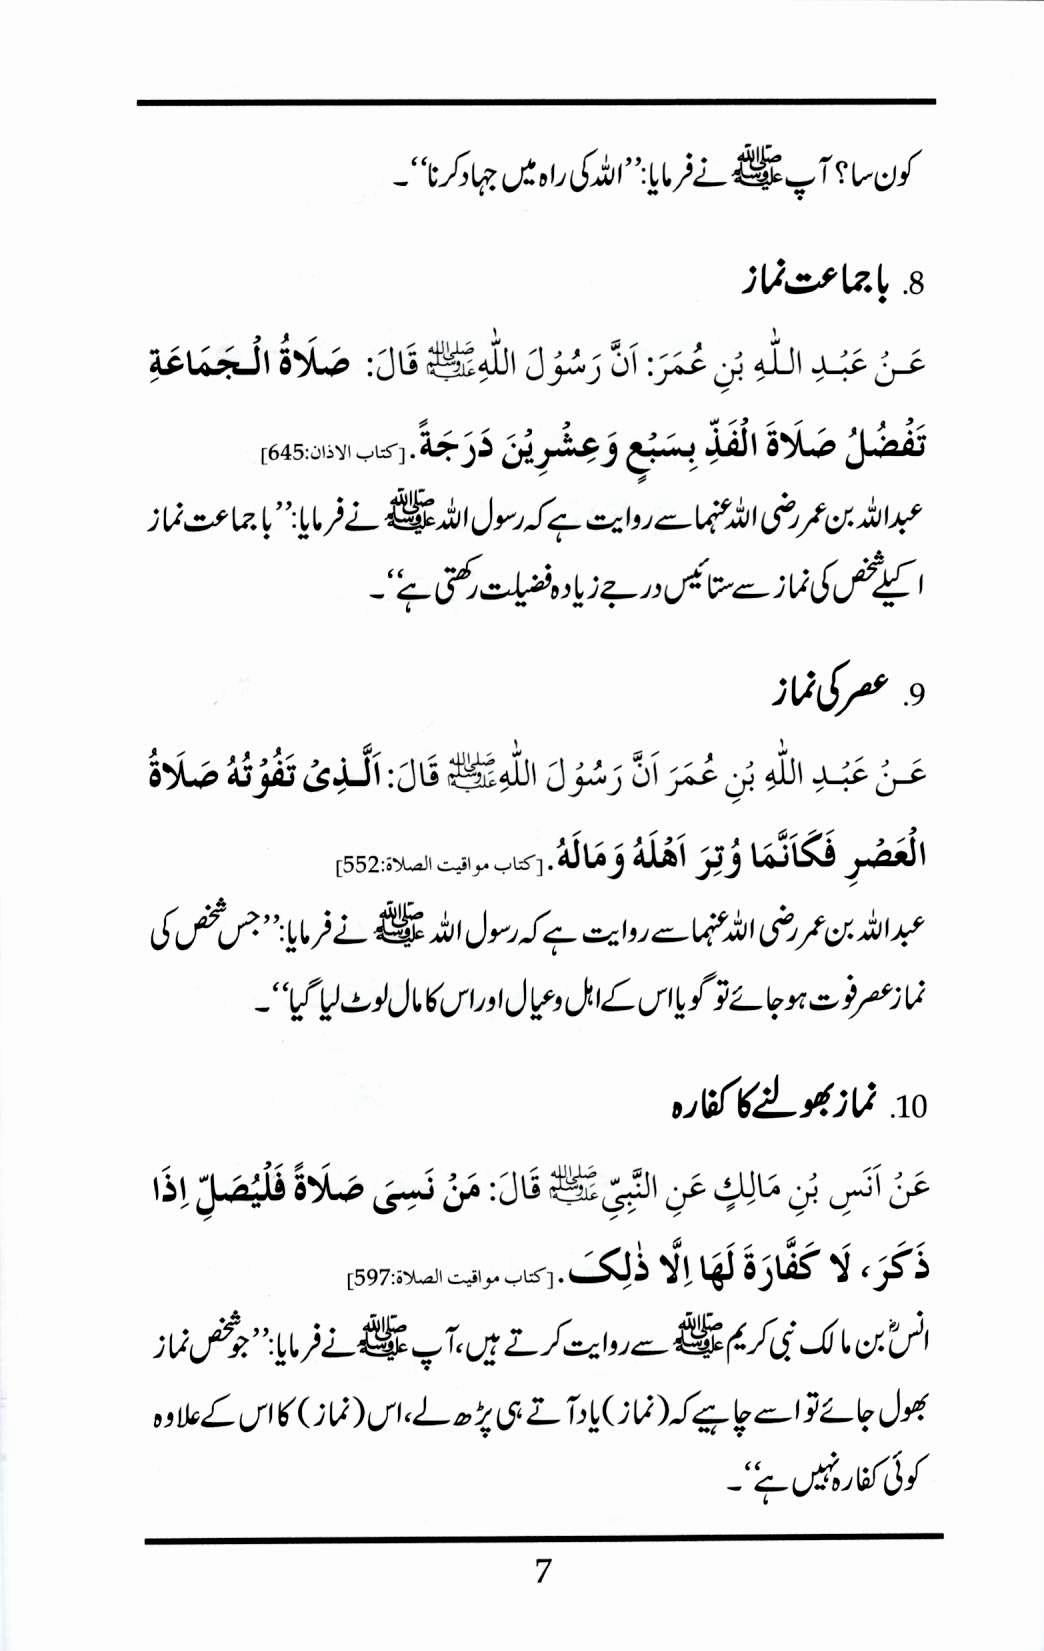 کون سا؟ آپ ﷺ نے فرمایا:’’اللہ کی راہ میں جہاد کرنا‘‘۔
8. باجماعت نماز
عَنْ عَبْدِ اللّٰهِ بْنِ عُمَرَ: اَنَّ رَسُوْلَ اللّٰهِ ﷺ قَالَ: صَلَاةُ الْجَمَاعَةِ
تَفْضُلُ صَلَاةَ الْفَذِّ بِسَبْعٍ وَعِشْرِيْنَ دَرَجَةً. [کتاب الاذان:645]
عبداللہ بن عمر رضی اللہ عنہما سے روایت ہے کہ رسول اللہ ﷺ نے فرمایا:’’باجماعت نماز
اکیلے شخص کی نماز سے ستائیس درجے زیادہ فضیلت رکھتی ہے‘‘۔
9. عصر کی نماز
عَنْ عَبْدِ اللّٰهِ بْنِ عُمَرَ اَنَّ رَسُوْلَ اللّٰهِ ﷺ قَالَ: اَلَّذِیْ تَفُوْتُهُ صَلَاةُ
الْعَصْرِ فَكَاَنَّمَا وُتِرَ اَهْلَهُ وَمَالَهُ. [کتاب مواقیت الصلاة:552]
عبداللہ بن عمر رضی اللہ عنہما سے روایت ہے کہ رسول اللہ ﷺ نے فرمایا:’’جس شخص کی
نماز عصر فوت ہو جائے تو گویا اس کے اہل و عیال اور اس کا مال لوٹ لیا گیا‘‘۔
10. نماز بھولنے کا کفارہ
عَنْ اَنَسِ بْنِ مَالِكٍ عَنِ النَّبِيِّ ﷺ قَالَ: مَنْ نَسِیَ صَلَاةً فَلْيُصَلِّ اِذَا
ذَكَرَ، لَا كَفَّارَةَ لَهَا اِلَّا ذٰلِکَ. [کتاب مواقیت الصلاة:597]
انسؓ بن مالک نبی کریم ﷺ سے روایت کرتے ہیں، آپ ﷺ نے فرمایا:’’جو شخص نماز
بھول جائے تو اسے چاہیے کہ (نماز) یاد آتے ہی پڑھ لے، اس (نماز) کا اس کے علاوہ
کوئی کفارہ نہیں ہے‘‘۔
7